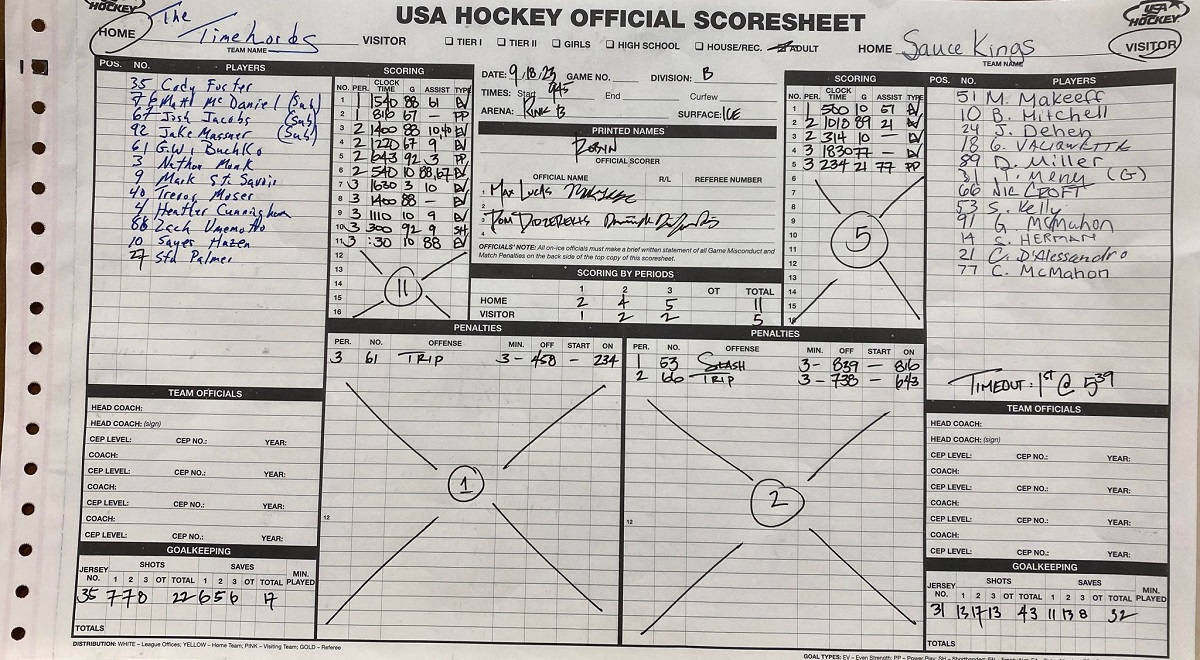 HOCKEY
USA HOCKEY OFFICIAL SCORESHEET
USA HOCKEY
HOME The Timelords VISITOR TIER I TIER II GIRLS HIGH SCHOOL HOUSE/REC. ADULT HOME Sauce Kings VISITOR
TEAM NAME
TEAM NAME
POS. NO. PLAYERS
35 Cody Foster
76 Matt McDaniel (Sub)
67 Josh Jacobs (Sub)
92 Jake Massner (Sub)
61 G.W. Buchko
3 Nathan Monk
9 Mark St. Savoie
40 Trevor Moser
4 Heather Cunningham
88 Zach Umemoto
10 Sayer Hazen
27 Stu Palmer
SCORING
NO. PER. CLOCK TIME G ASSIST TYPE
1 1 1540 88 61 EV
2 1 816 67 — PP
3 2 1400 88 10,40 EV
4 2 1220 67 9 EV
5 2 643 92 3 PP
6 2 540 10 88,67 EV
7 3 1630 3 10 EV
8 3 1400 88 — EV
9 3 1110 10 9 EV
10 3 300 92 9 SH
11 3 :30 10 88 EV
12
13
14
15
16
11
DATE: 9.18.23 GAME NO. DIVISION: B
TIMES: Start 945 End Curfew
ARENA: RINK B SURFACE: ICE
PRINTED NAMES
ROBYN
OFFICIAL SCORER
OFFICIAL NAME R/L REFEREE NUMBER
1 MAX LUCAS
2
3
4
OFFICIALS' NOTE: All on-ice officials must make a brief written statement of all Game Misconduct and
Match Penalties on the back side of the top copy of this scoresheet.
SCORING BY PERIODS
1 2 3 OT TOTAL
HOME 2 4 5 11
VISITOR 1 2 2 5
SCORING
NO. PER. CLOCK TIME G ASSIST TYPE
1 1 560 10 67 EV
2 2 1018 89 21 EV
3 2 314 10 — EV
4 3 1830 77 — EV
5 3 234 21 77 PP
6
7
8
9
10
11
12
13
14
15
16
5
POS. NO. PLAYERS
51 M. Makeeff
10 B. Mitchell
24 J. Dehen
18 G.
89 D. Miller
31 T. Meny (G)
66 NIC CROFT
53 S. Kelly
91 G. McMahon
14 S. HERMAN
21 C. D'Alessandro
77 C. McMahon
TIMEOUT: 1ST @ 539
PENALTIES
PER. NO. OFFENSE MIN. OFF START ON
3 61 TRIP 3 - 458 - 234
12
1
PENALTIES
PER. NO. OFFENSE MIN. OFF START ON
1 53 SLASH 3 - 839 - 816
2 66 TRIP 3 - 738 - 643
12
2
TEAM OFFICIALS
HEAD COACH:
HEAD COACH: (sign)
CEP LEVEL: CEP NO.: YEAR:
COACH:
CEP LEVEL: CEP NO.: YEAR:
COACH:
CEP LEVEL: CEP NO.: YEAR:
COACH:
CEP LEVEL: CEP NO.: YEAR:
GOALKEEPING
JERSEY NO. SHOTS SAVES MIN. PLAYED
1 2 3 OT TOTAL 1 2 3 OT TOTAL
35 7 7 8 22 6 5 6 17
TOTALS
TEAM OFFICIALS
HEAD COACH:
HEAD COACH: (sign)
CEP LEVEL: CEP NO.: YEAR:
COACH:
CEP LEVEL: CEP NO.: YEAR:
COACH:
CEP LEVEL: CEP NO.: YEAR:
COACH:
CEP LEVEL: CEP NO.: YEAR:
GOALKEEPING
JERSEY NO. SHOTS SAVES MIN. PLAYED
1 2 3 OT TOTAL 1 2 3 OT TOTAL
31 13 17 13 43 11 13 8 32
TOTALS
DISTRIBUTION: WHITE – League Offices; YELLOW – Home Team; PINK – Visiting Team; GOLD – Referee
GOAL TYPES: EV – Even Strength; PP – Power Play; SH – Shorthanded;